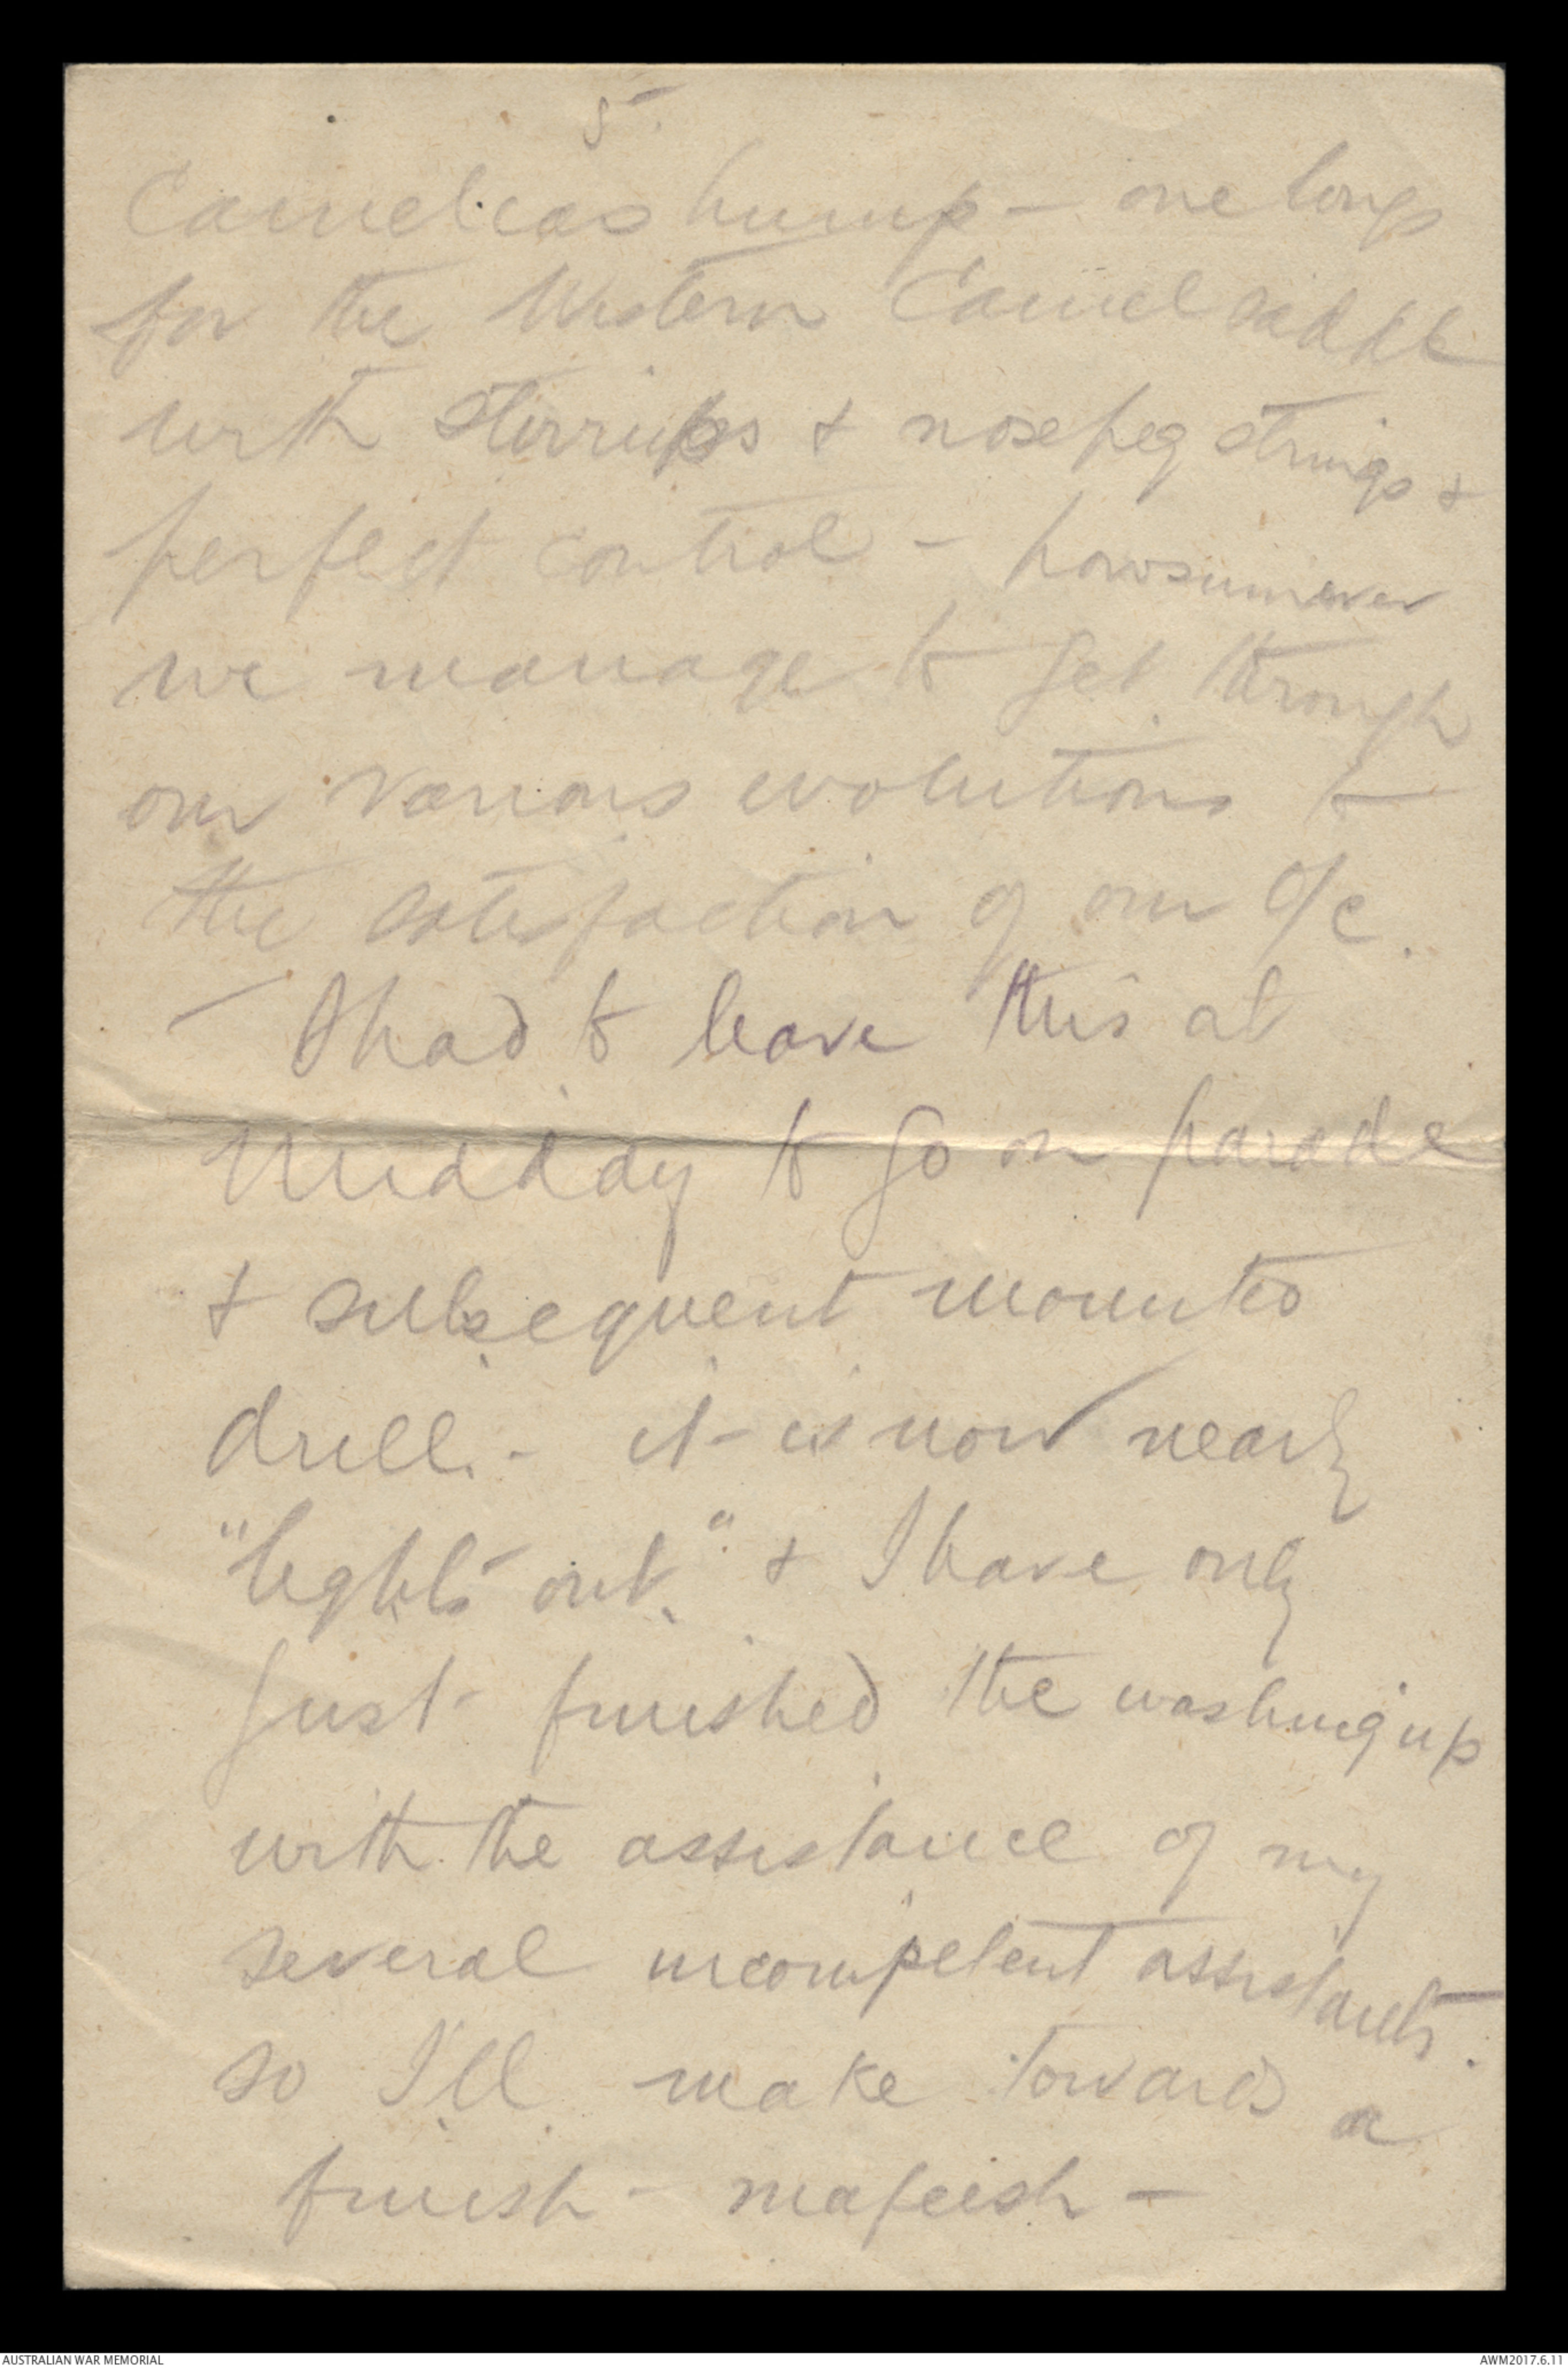 5.
Camelias hump – one longs
for the Western Camel saddle
with stirrups & nosepeg strings &
perfect control – howsumever
we manage to get through
our various evolutions to
the satisfaction of our O/C.
– I had to leave this at
midday to go on parade
& subsequent mounted
drill. – it is now nearly
"lights out." & I have only
just finished the washing up
with the assistance of my
several incompetent assistants.
so I'll make towards a
finish – mafeesh –
AUSTRALIAN WAR MEMORIAL
AWM2017.6.11